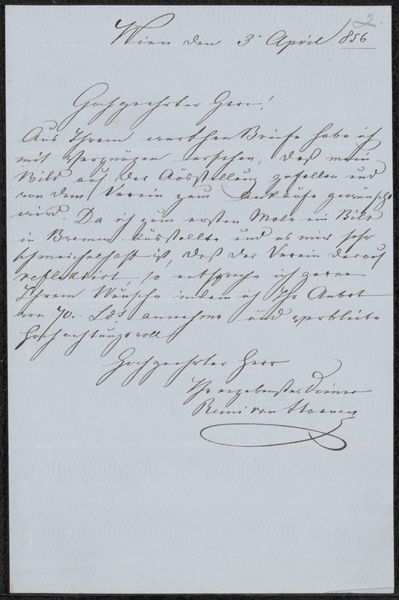 2.
Wien den 3 April 856.
Hochgeehrter Herr!
Aus Ihrem werthen Briefe habe ich
mit Vergnügen ersehen, daß mein
Bild auf der Ausstellung gefallen und
von dem Verein zum Ankaufe gewünscht
wird. Da ich zum ersten Male ein Bild
in Bremen ausstellte und es mir sehr
schmeichelhaft ist, daß der Verein darauf
reflektirt so entspreche ich gerne
Ihrem Wunsche indem ich Ihr Anbot
von 70. annehme und verbleibe
Hochachtungsvoll
Hochgeehrter Herr
Ihr ergebenster Diener
Remi van Haanen